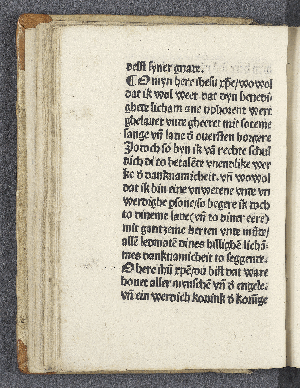 delst syner gnade.
O myn here ihesu xp̄e/wo wol
dat ik wol weet dat dyn benedi-
ghede licham ane uphorent wert
ghelauet vnde gheeret mit soteme
sange vn̄ laue d̄ ouersten borgere
Jodoch so byn ik vā rechte schul
dich di to betalēde vnentlike wer
ke d̄ dancknamicheit. vn̄ wowol
dat ik bin eine vnwetene vnde vn
werdighe psone/so begere ik doch
to dineme laue (vn̄ to diner eere)
mit gantzeme herten vnde müde/
alle ledemate dines hillighē lichā-
mes dancknamicheit to seggende.
O here ihū xp̄e/du bist dat ware
houet aller mynschē vn̄ d̄ engele.
vn̄ ein werdich konink d̄ konige